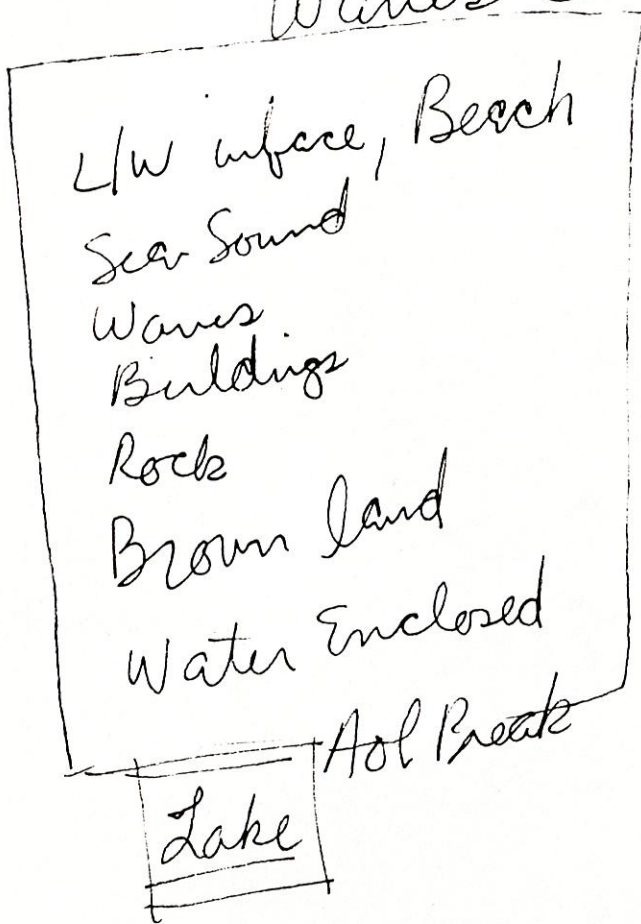 L/W inface, Beach
Sea Sound
Waves
Buildings
Rock
Brown land
Water Enclosed
Aol Break
Lake